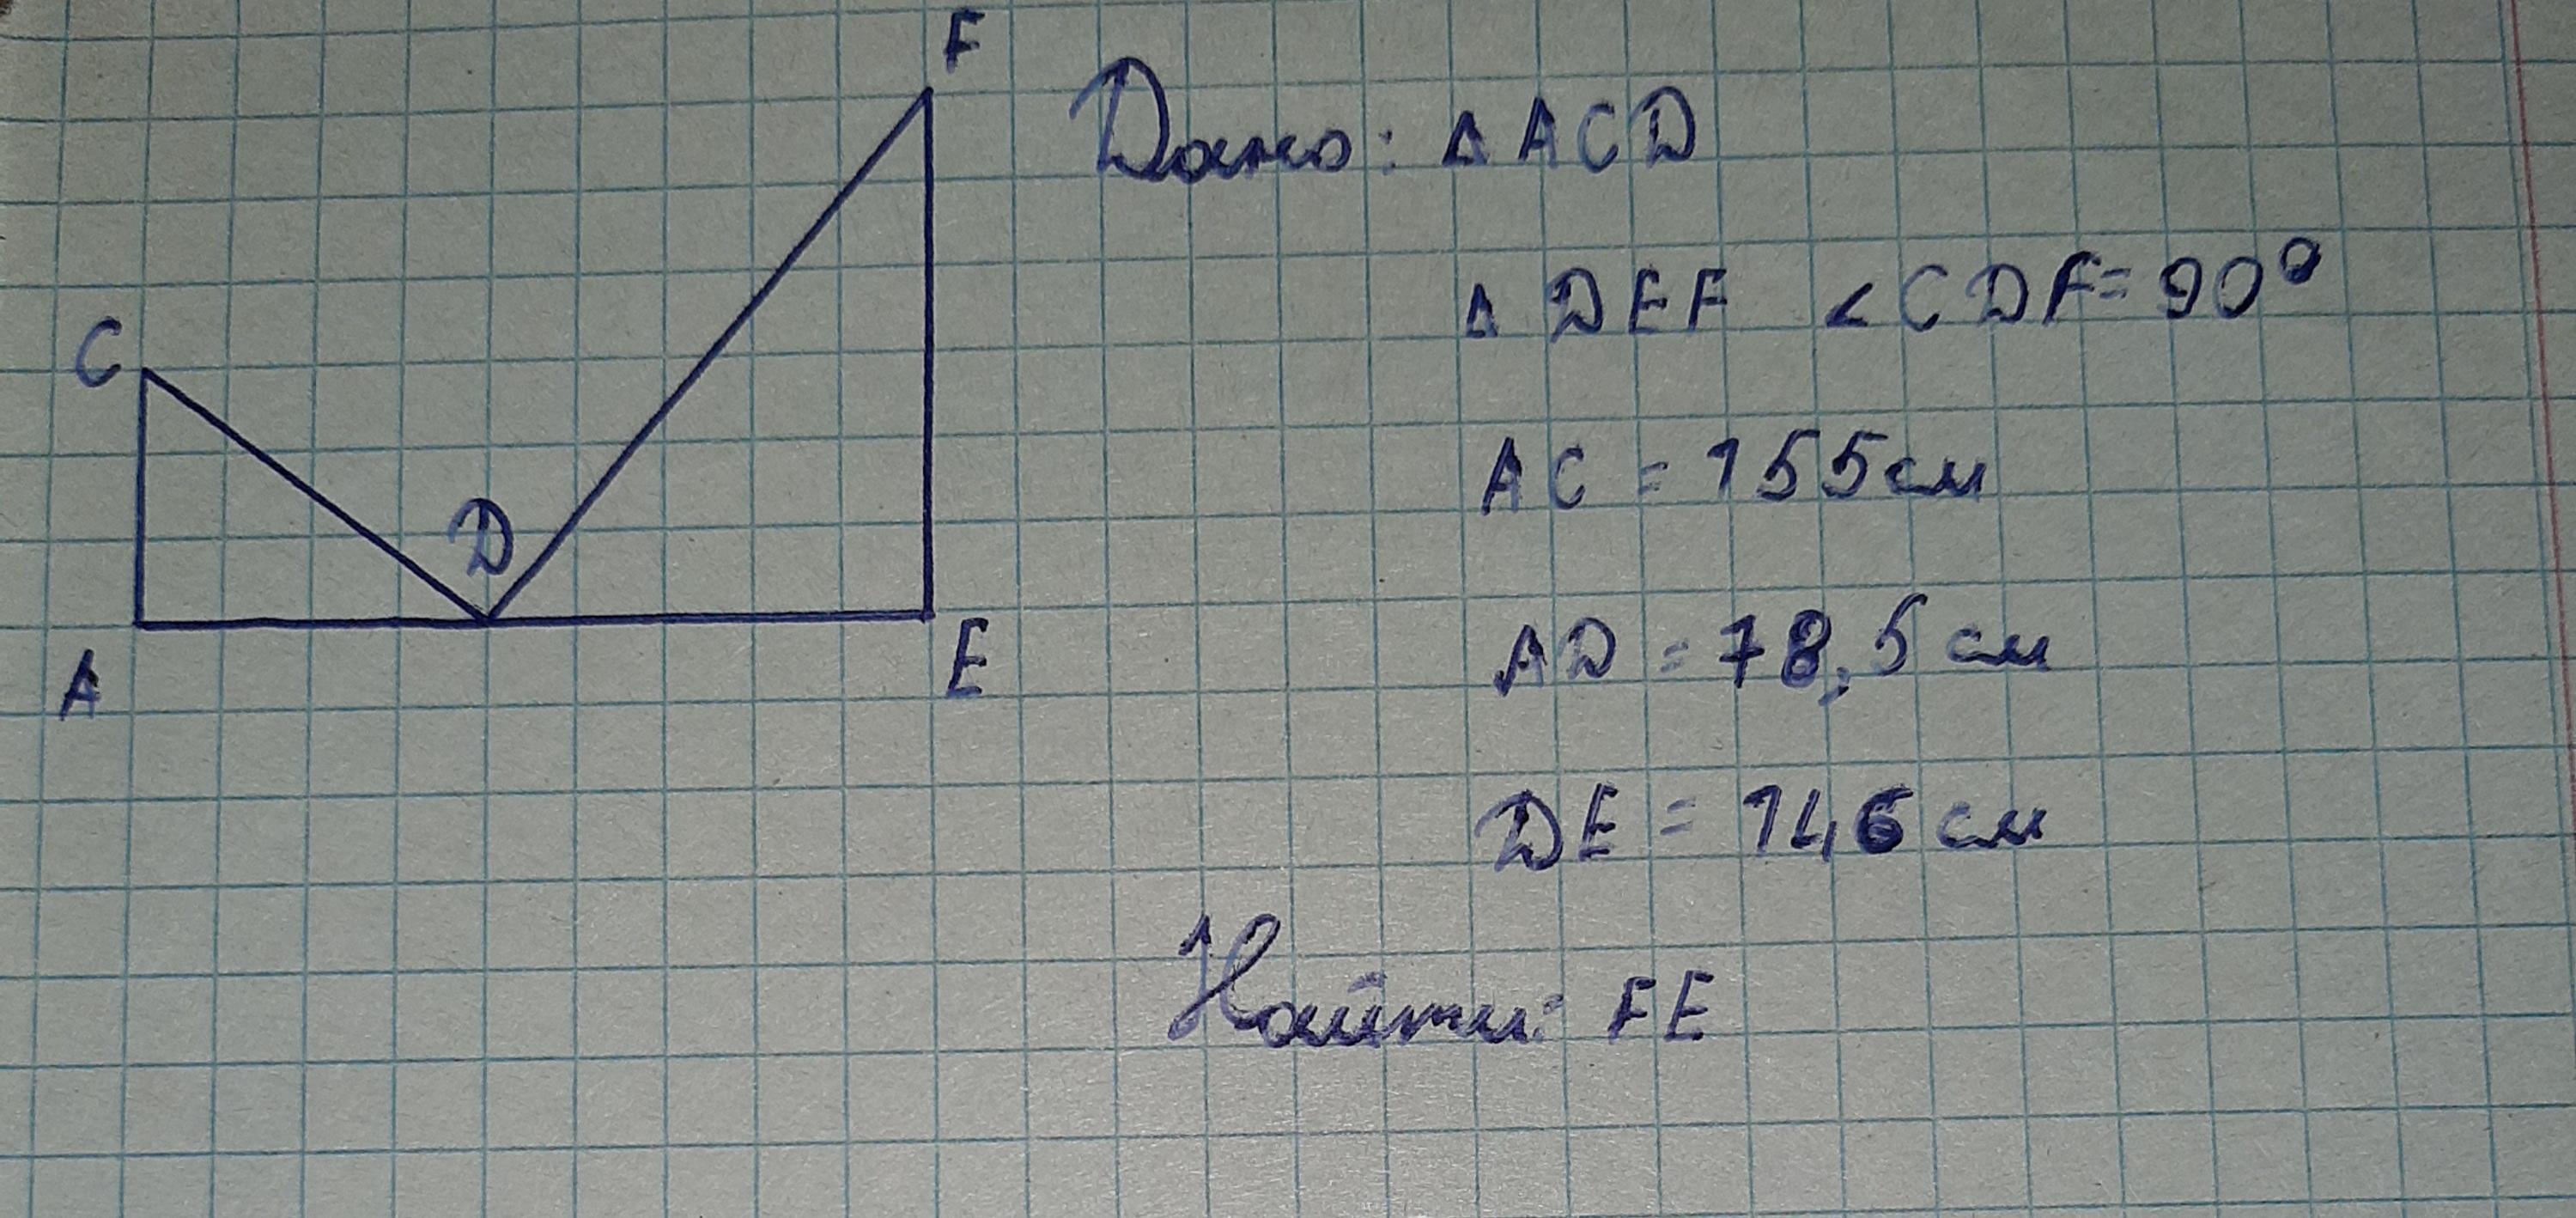 F
Дано: Δ ACD
Δ DEF ∠CDF=90°
C
AC = 155см
D
AD = 78,5 см
A
E
DE = 146 см
Найти: FE